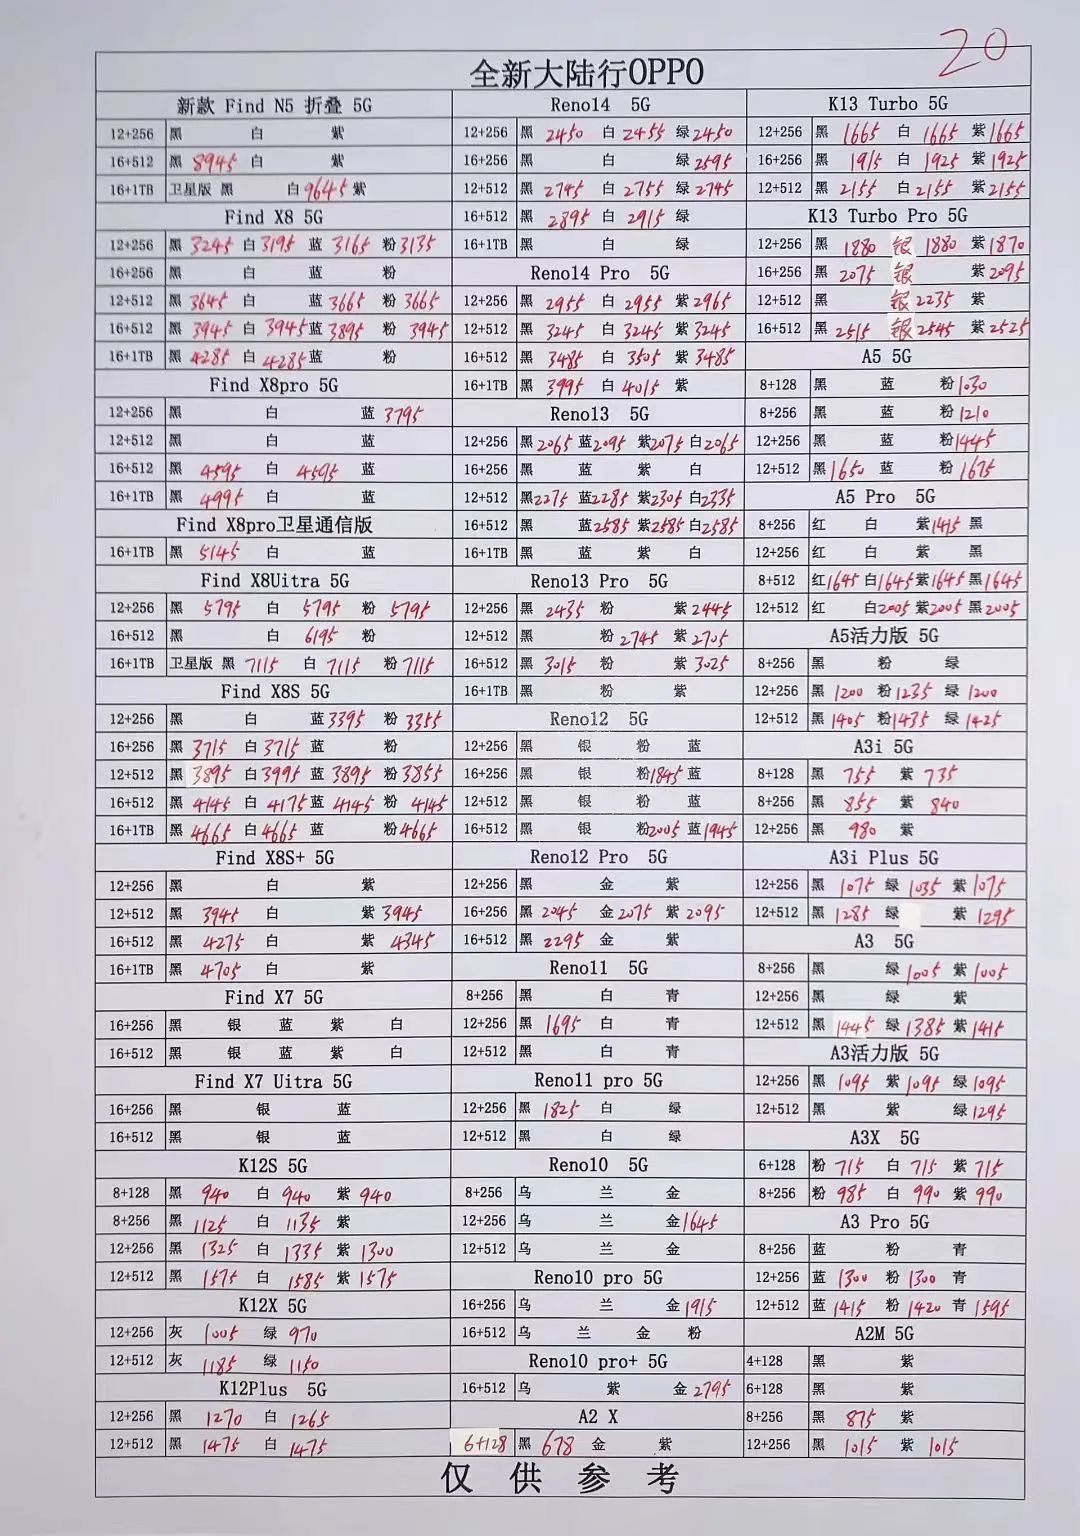 20
全新大陆行OPPO
新款 Find N5 折叠 5G
12+256 黑 白 紫
16+512 黑 8945 白 紫
16+1TB 卫星版 黑 白 9645 紫
Find X8 5G
12+256 黑 3245 白 3195 蓝 3165 粉 3135
16+256 黑 白 蓝 粉
12+512 黑 3645 白 蓝 3665 粉 3665
16+512 黑 3945 白 3945 蓝 3895 粉 3945
16+1TB 黑 4285 白 4285 蓝 粉
Find X8pro 5G
12+256 黑 白 蓝 3795
12+512 黑 白 蓝
16+512 黑 4595 白 4595 蓝
16+1TB 黑 4995 白 蓝
Find X8pro卫星通信版
16+1TB 黑 5145 白 蓝
Find X8Uitra 5G
12+256 黑 5795 白 5795 粉 5795
16+512 黑 白 6195 粉
16+1TB 卫星版 黑 7115 白 7115 粉 7115
Find X8S 5G
12+256 黑 白 蓝 3395 粉 3355
16+256 黑 3715 白 3715 蓝 粉
12+512 黑 3895 白 3995 蓝 3895 粉 3855
16+512 黑 4145 白 4175 蓝 4145 粉 4145
16+1TB 黑 4665 白 4665 蓝 粉 4665
Find X8S+ 5G
12+256 黑 白 紫
12+512 黑 3945 白 紫 3945
16+512 黑 4275 白 紫 4345
16+1TB 黑 4705 白 紫
Find X7 5G
16+256 黑 银 蓝 紫 白
16+512 黑 银 蓝 紫 白
Find X7 Uitra 5G
16+256 黑 银 蓝
16+512 黑 银 蓝
K12S 5G
8+128 黑 940 白 940 紫 940
8+256 黑 1125 白 1135 紫
12+256 黑 1325 白 1335 紫 1300
12+512 黑 1575 白 1585 紫 1575
K12X 5G
12+256 灰 1005 绿 970
12+512 灰 1185 绿 1150
K12Plus 5G
12+256 黑 1270 白 1265
12+512 黑 1475 白 1475
Reno14 5G
12+256 黑 2450 白 2455 绿 2450
16+256 黑 白 绿 2595
12+512 黑 2745 白 2755 绿 2745
16+512 黑 2895 白 2915 绿
16+1TB 黑 白 绿
Reno14 Pro 5G
12+256 黑 2955 白 2955 紫 2965
12+512 黑 3245 白 3245 紫 3245
16+512 黑 3485 白 3505 紫 3485
16+1TB 黑 3995 白 4015 紫
Reno13 5G
12+256 黑 2065 蓝 2095 紫 2075 白 2065
16+256 黑 蓝 紫 白
12+512 黑 2275 蓝 2285 紫 2305 白 2335
16+512 黑 蓝 2585 紫 2585 白 2585
16+1TB 黑 蓝 紫 白
Reno13 Pro 5G
12+256 黑 2435 粉 紫 2445
12+512 黑 粉 2745 紫 2705
16+512 黑 3015 粉 紫 3025
16+1TB 黑 粉 紫
Reno12 5G
12+256 黑 银 粉 蓝
16+256 黑 银 粉 1845 蓝
12+512 黑 银 粉 蓝
16+512 黑 银 粉 2005 蓝 1945
Reno12 Pro 5G
12+256 黑 金 紫
16+256 黑 2045 金 2075 紫 2095
16+512 黑 2295 金 紫
Reno11 5G
8+256 黑 白 青
12+256 黑 1695 白 青
12+512 黑 白 青
Reno11 pro 5G
12+256 黑 1825 白 绿
12+512 黑 白 绿
Reno10 5G
8+256 乌 兰 金
12+256 乌 兰 金 1645
12+512 乌 兰 金
Reno10 pro 5G
16+256 乌 兰 金 1915
16+512 乌 兰 金 粉
Reno10 pro+ 5G
16+512 乌 紫 金 2795
A2 X
6+128 黑 678 金 紫
K13 Turbo 5G
12+256 黑 1665 白 1665 紫 1665
16+256 黑 1915 白 1925 紫 1925
12+512 黑 2155 白 2155 紫 2155
K13 Turbo Pro 5G
12+256 黑 1880 银 1880 紫 1870
16+256 黑 2075 银 紫 2095
12+512 黑 银 2235 紫
16+512 黑 2515 银 2545 紫 2525
A5 5G
8+128 黑 蓝 粉 1030
8+256 黑 蓝 粉 1210
12+256 黑 蓝 粉 1445
12+512 黑 1650 蓝 粉 1675
A5 Pro 5G
8+256 红 白 紫 1415 黑
12+256 红 白 紫 黑
8+512 红 1645 白 1645 紫 1645 黑 1645
12+512 红 白 2005 紫 2005 黑 2005
A5活力版 5G
8+256 黑 粉 绿
12+256 黑 1200 粉 1235 绿 1200
12+512 黑 1405 粉 1435 绿 1425
A3i 5G
8+128 黑 755 紫 735
8+256 黑 855 紫 840
12+256 黑 980 紫
A3i Plus 5G
12+256 黑 1075 绿 1035 紫 1075
12+512 黑 1285 绿 紫 1295
A3 5G
8+256 黑 绿 1005 紫 1005
12+256 黑 绿 紫
12+512 黑 1445 绿 1385 紫 1415
A3活力版 5G
12+256 黑 1095 紫 1095 绿 1095
12+512 黑 紫 绿 1295
A3X 5G
6+128 粉 715 白 715 紫 715
8+256 粉 985 白 990 紫 990
A3 Pro 5G
8+256 蓝 粉 青
12+256 蓝 1300 粉 1300 青
12+512 蓝 1415 粉 1420 青 1595
A2M 5G
4+128 黑 紫
6+128 黑 紫
8+256 黑 875 紫
12+256 黑 1015 紫 1015
仅供参考